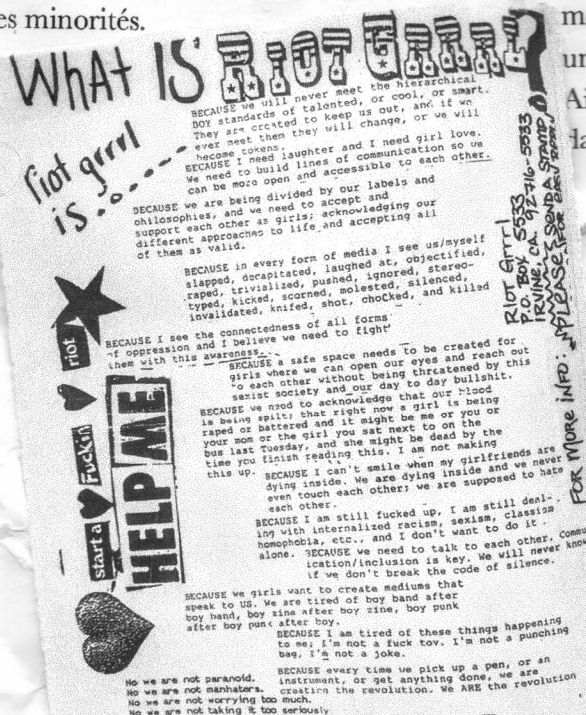 es minorités.
WhAt IS RIOT GRRRL?
riot grrrl
is........
BECAUSE we will never meet the hierarchical
BOY standards of talented, or cool, or smart.
They are created to keep us out, and if we
ever meet them they will change, or we will
become tokens.
BECAUSE I need laughter and I need girl love.
We need to build lines of communication so we
can be more open and accessible to each other.
BECAUSE we are being divided by our labels and
philosophies, and we need to accept and
support each other as girls; acknowledging our
different approaches to life and accepting all
of them as valid.
BECAUSE in every form of media I see us/myself
slapped, decapitated, laughed at, objectified,
raped, trivialized, pushed, ignored, stereo-
typed, kicked, scorned, molested, silenced,
invalidated, knifed, shot, chocked, and killed
BECAUSE I see the connectedness of all forms
of oppression and I believe we need to fight
them with this awareness.
BECAUSE a safe space needs to be created for
girls where we can open our eyes and reach out
to each other without being threatened by this
sexist society and our day to day bullshit.
BECAUSE we need to acknowledge that our blood
is being spilt; that right now a girl is being
raped or battered and it might be me or you or
your mom or the girl you sat next to on the
bus last Tuesday, and she might be dead by the
time you finish reading this. I am not making
this up.
BECAUSE I can't smile when my girlfriends are
dying inside. We are dying inside and we never
even touch each other; we are supposed to hate
each other.
BECAUSE I am still fucked up, I am still deal-
ing with internalized racism, sexism, classism
homophobia, etc., and I don't want to do it
alone.
BECAUSE we need to talk to each other. Commun
ication/inclusion is key. We will never know
if we don't break the code of silence.
BECAUSE we girls want to create mediums that
speak to US. We are tired of boy band after
boy band, boy zine after boy zine, boy punk
after boy punk after boy.
BECAUSE I am tired of these things happening
to me; I'm not a fuck toy. I'm not a punching
bag, I'm not a joke.
BECAUSE every time we pick up a pen, or an
instrument, or get anything done, we are
creating the revolution. We ARE the revolution
No we are not paranoid.
No we are not manhaters.
No we are not worrying too much.
No we are not taking it too seriously
start a
Fuckin
riot
HELP ME
FOR MORE INFO:
RIOT Grrrl
P.O. BOX 5533
IRVINE, CA. 92716-5533
PLEASE SEND A STAMP
m
un